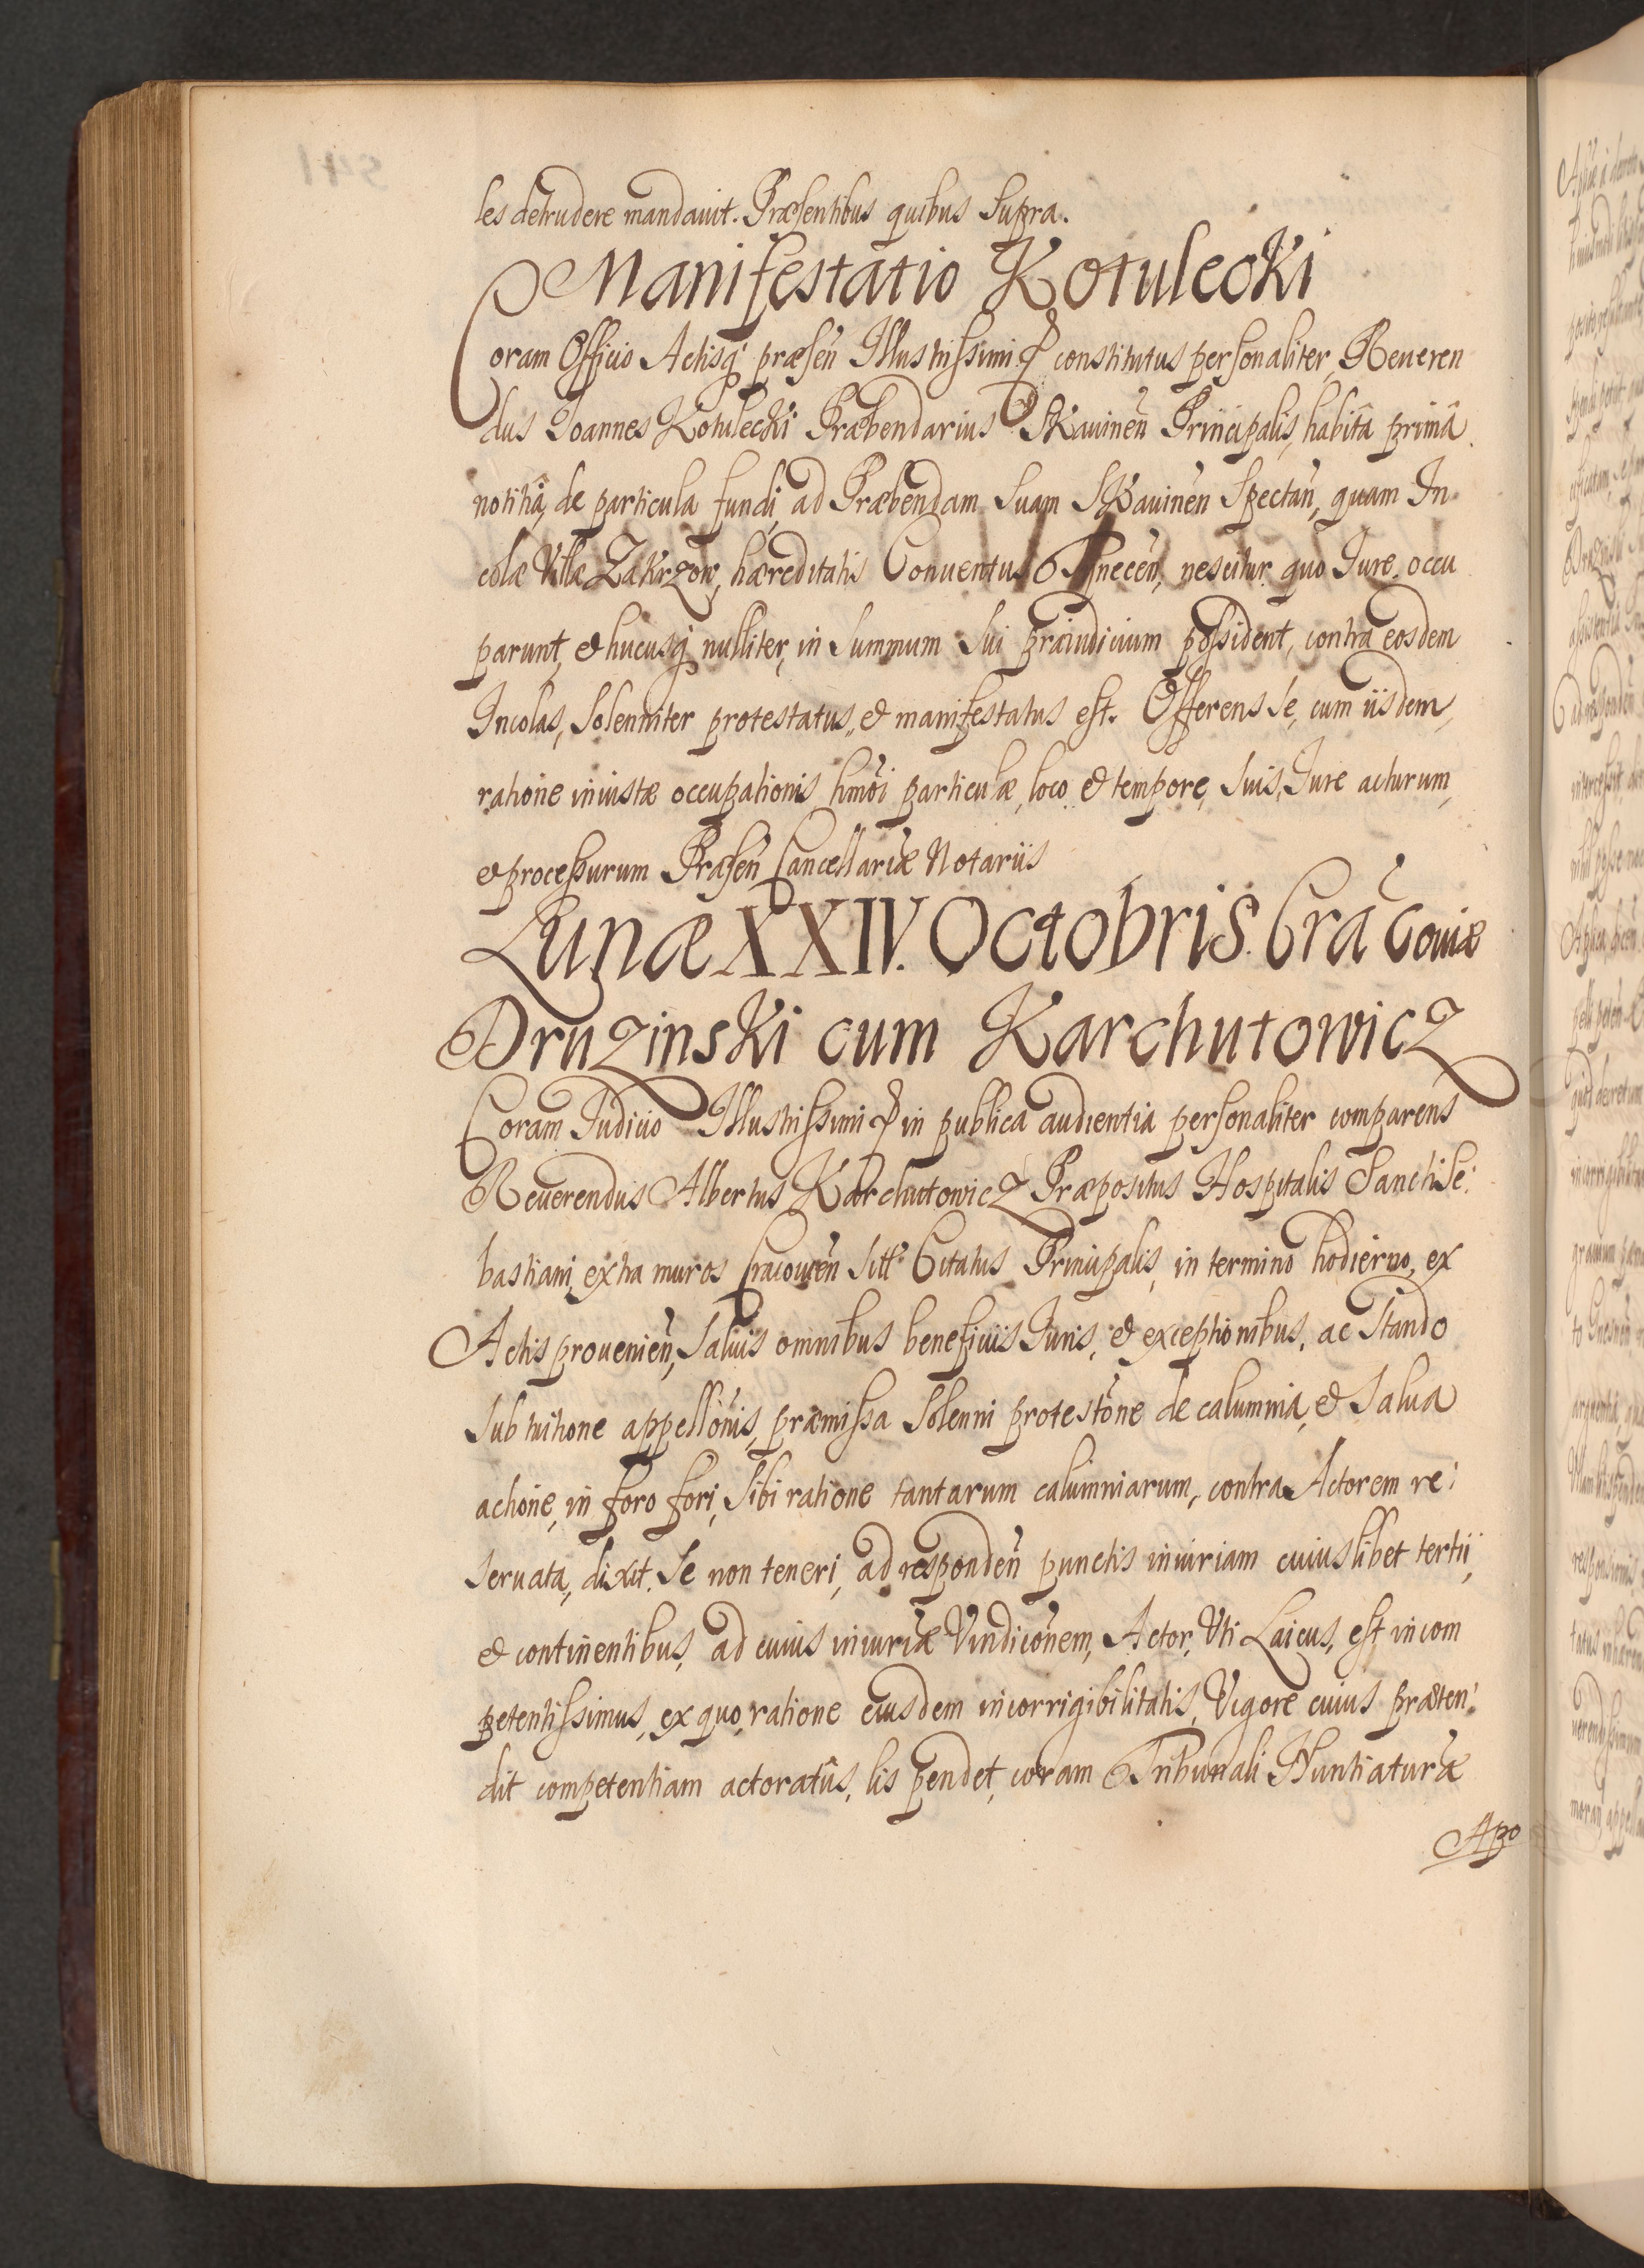 les detrudere mandavit. Præsentibus quibus supra.
Manifestatio Kotulecki
Coram Officio Actisq præsen Illustrissimi constitutus personaliter, Reueren
dus Joannes Kotulecki Præbendarius Skauinen Principalis, habitâ primâ
notitiâ, de particula fundi, ad Præbendam suam Skauinen spectan, quam In
colæ Villæ Zakrzow, hæreditatis Conuentus Tynecen, nescitur quo Iure, occu
parunt, et hucusq nulliter, in summum sui præiudicium possident, contra eosdem
Incolas, solenniter protestatus, et manifestatus est. Offerens se, cum iisdem,
ratione iniustæ occupationis hmoi particulæ, loco et tempore, suis, Iure acturum,
et processurum Præsen Cancellariæ Notariis
Lunæ XXIV. Octobris. Cracouiæ
Druzinski cum Karchutowicz
Coram Iudicio Illustrissimi in publica audientia personaliter comparens
Reuerendus Albertus Karchutowicz Præpositus Hospitalis Sancti Se:
bastiani, extra muros Cracouien siti Citatus Principalis, in termino hodierno, ex
Actis prouenien, saluis omnibus beneficiis Iuris, et exceptionibus, ac stando
sub tuitione appellonis, præmissa solenni protestone de calumnia, et salua
actione, in foro fori, sibi ratione tantarum calumniarum, contra Actorem re:
seruata, dixit. Se non teneri, ad responden punctis iniuriam cuiuslibet tertii,
et continentibus, ad cuius iniuriæ Vindiconem, Actor, Vti Laicus, est incom
petentissimus, ex quo, ratione eiusdem incorrigibilitatis, Vigore cuius præten:
dit competentiam actoratûs, lis pendet, coram Tribunali Nuntiaturæ
Apo